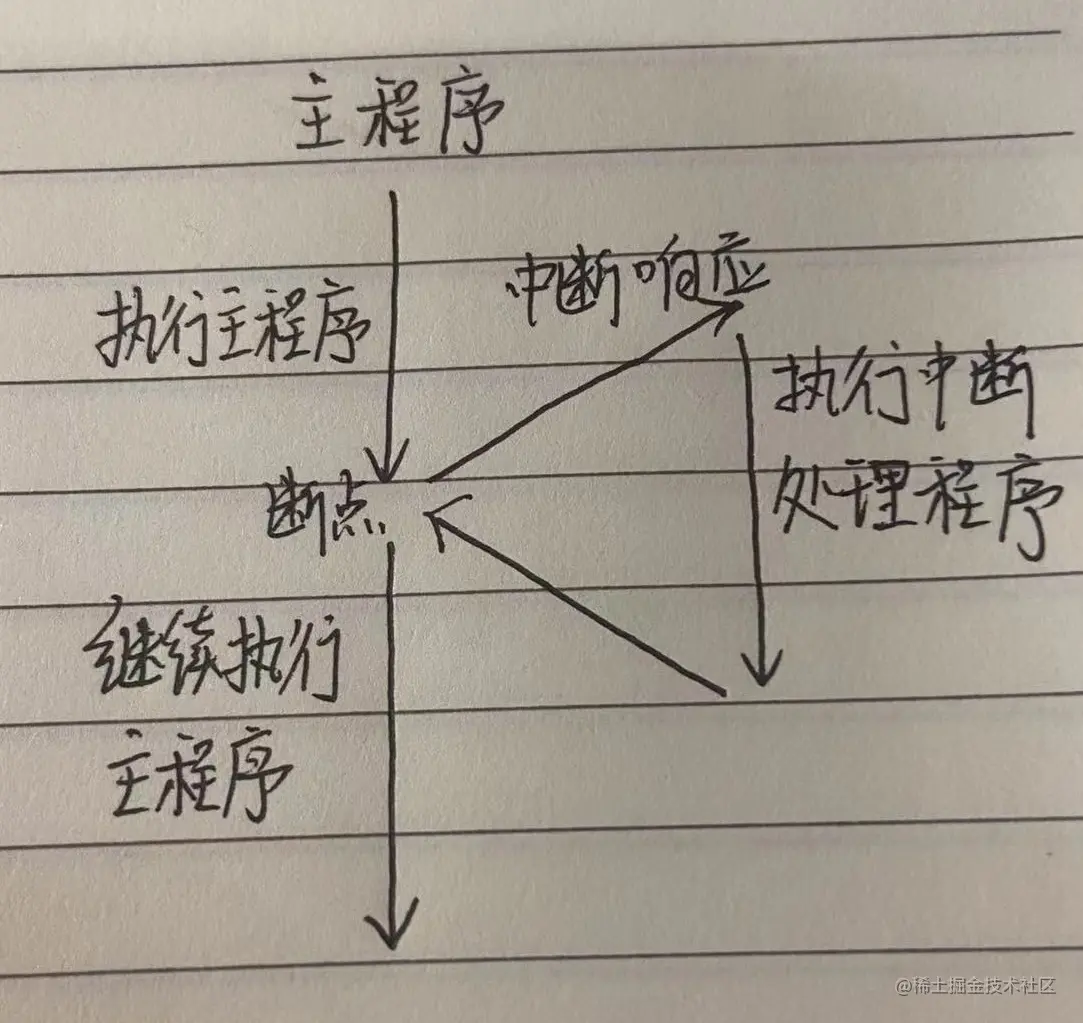 主程序
中断响应
执行主程序
执行中断
处理程序
断点
继续执行
主程序
@稀土掘金技术社区